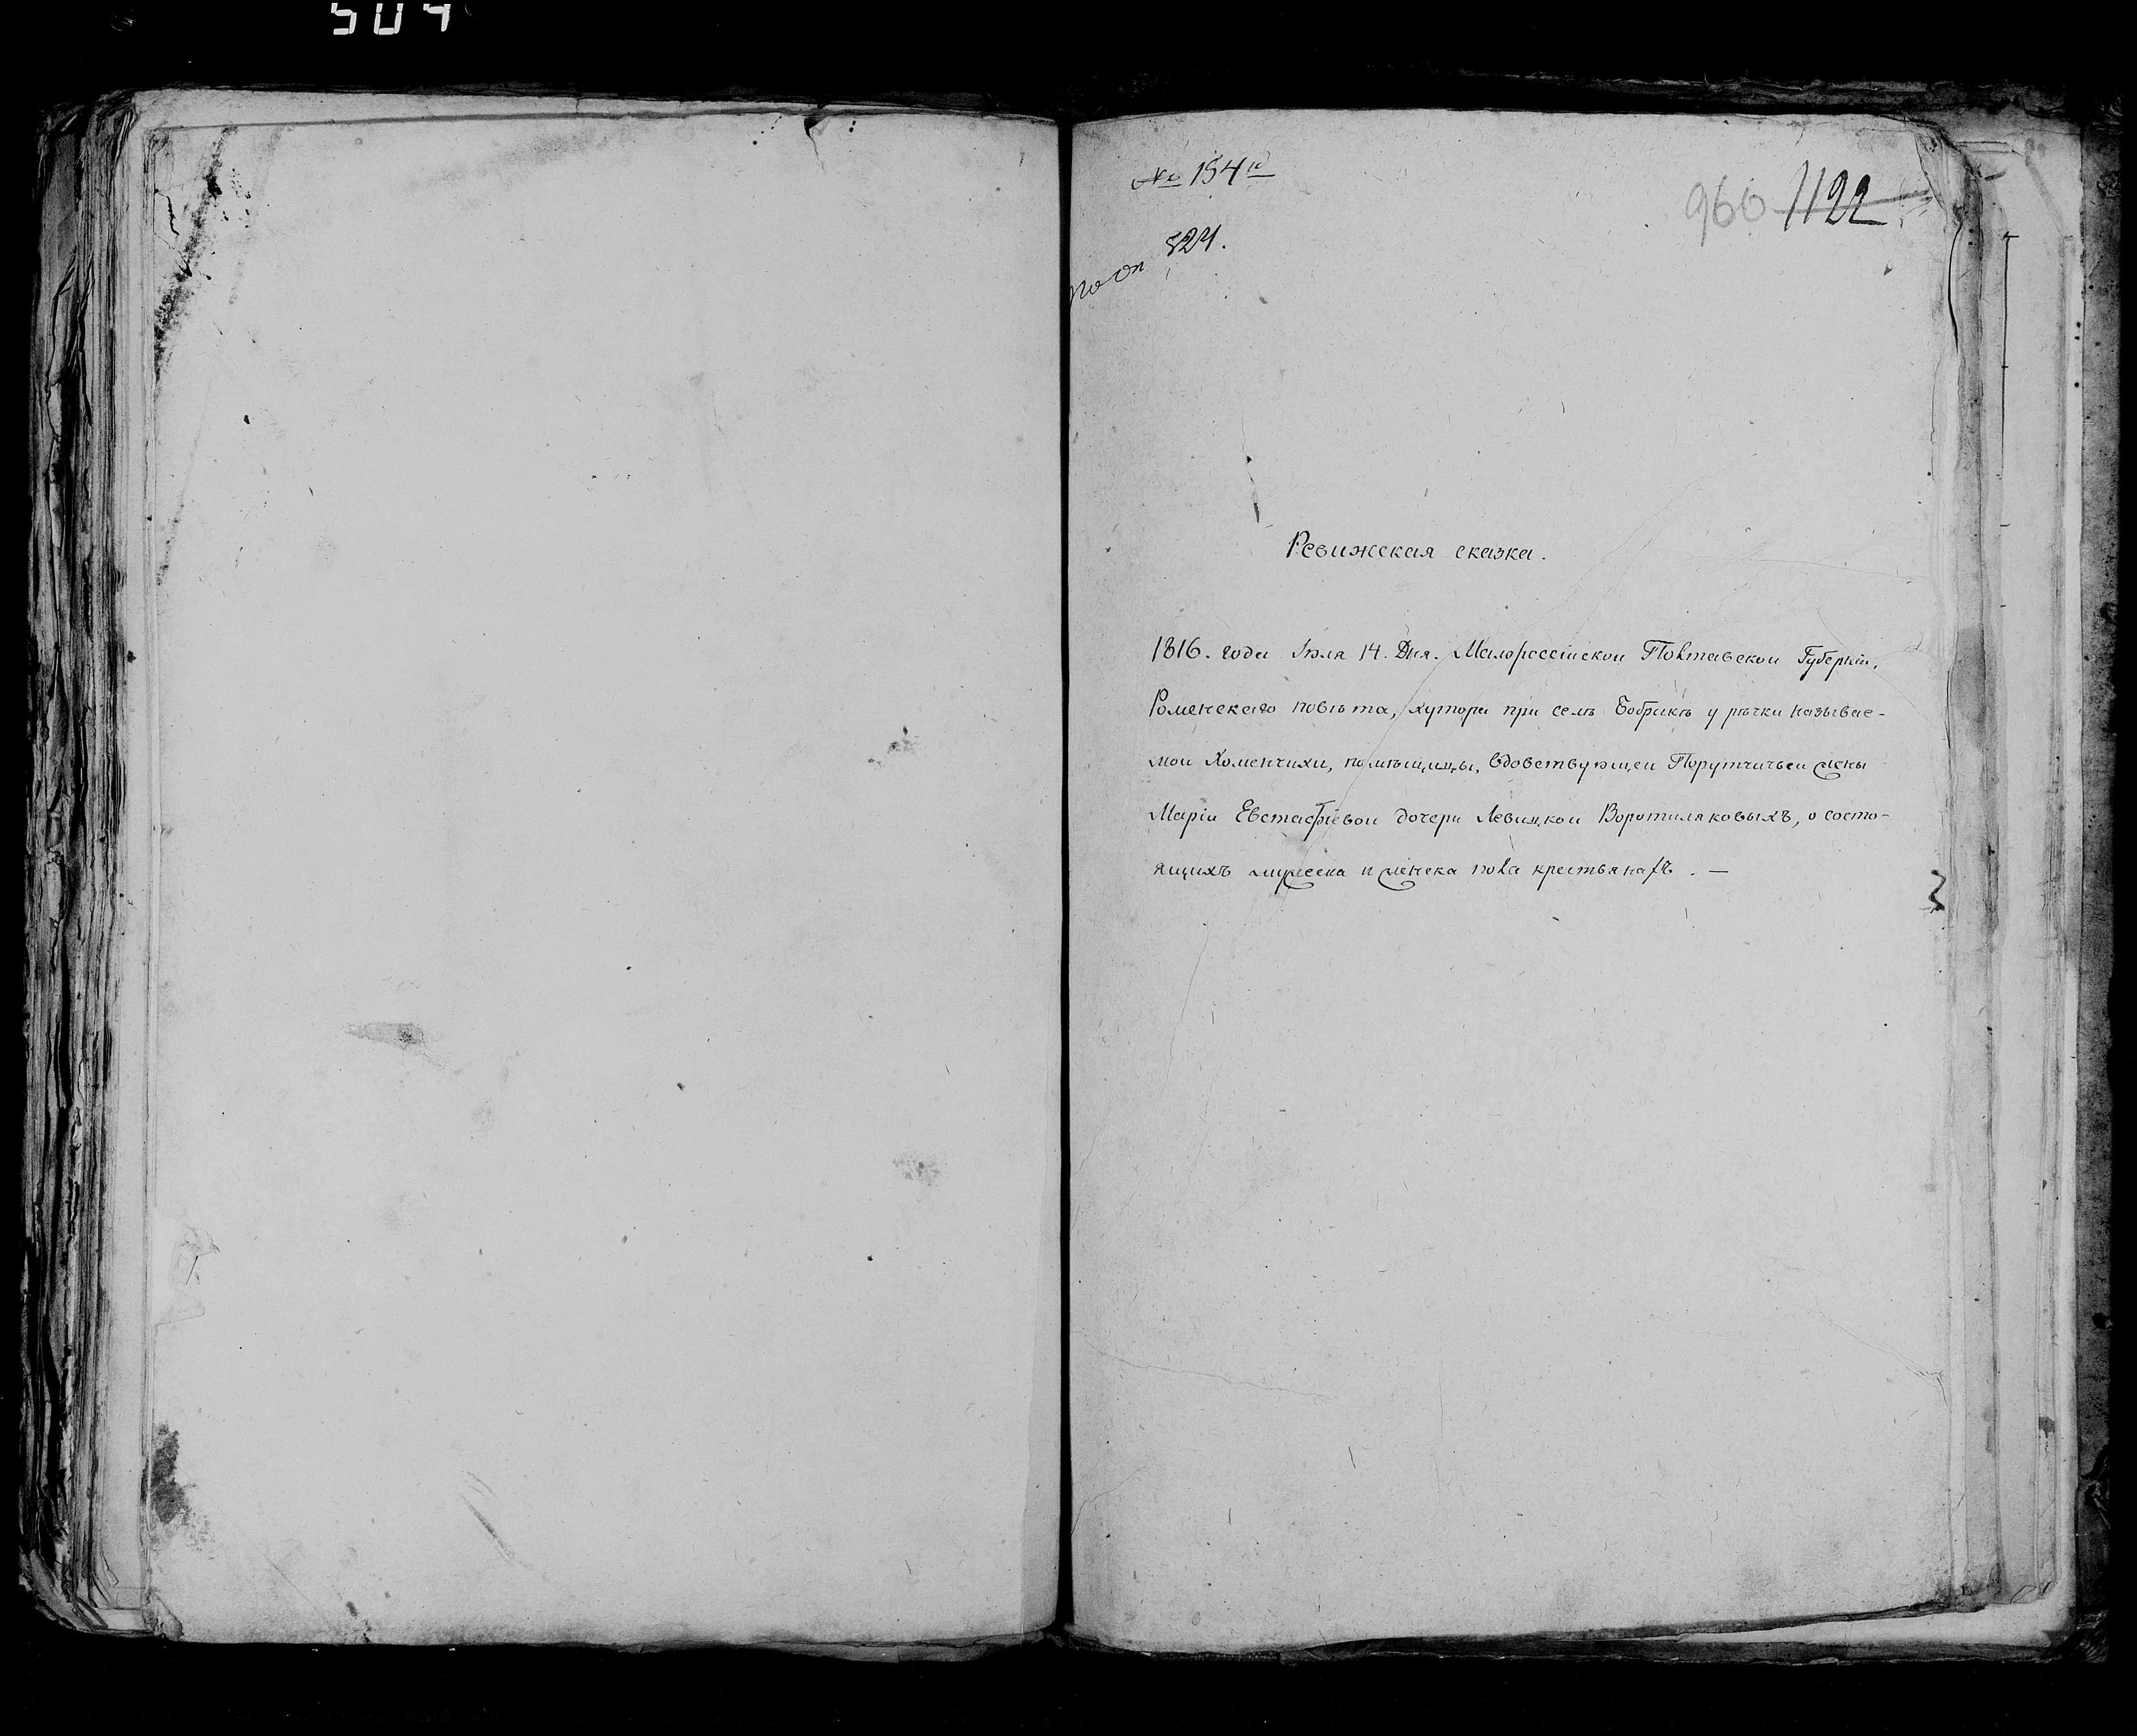 504
№ 154й
960 1122
по оп 824.
Ревижская сказка.
1816. года Июля 14. Дня. Малоросссійской Полтавской Губерніи,
Роменскаго повѣта, хутора при селѣ Бобрикѣ у рѣчки называе-
мой Хоменчихи, помѣщицы, вдовствующей Порутчичьей жены
Маріи Евстафіевой дочери Левицкой Воротиляковыхъ, о состо-
ящихъ мужеска и женска пола крестьянахъ. —